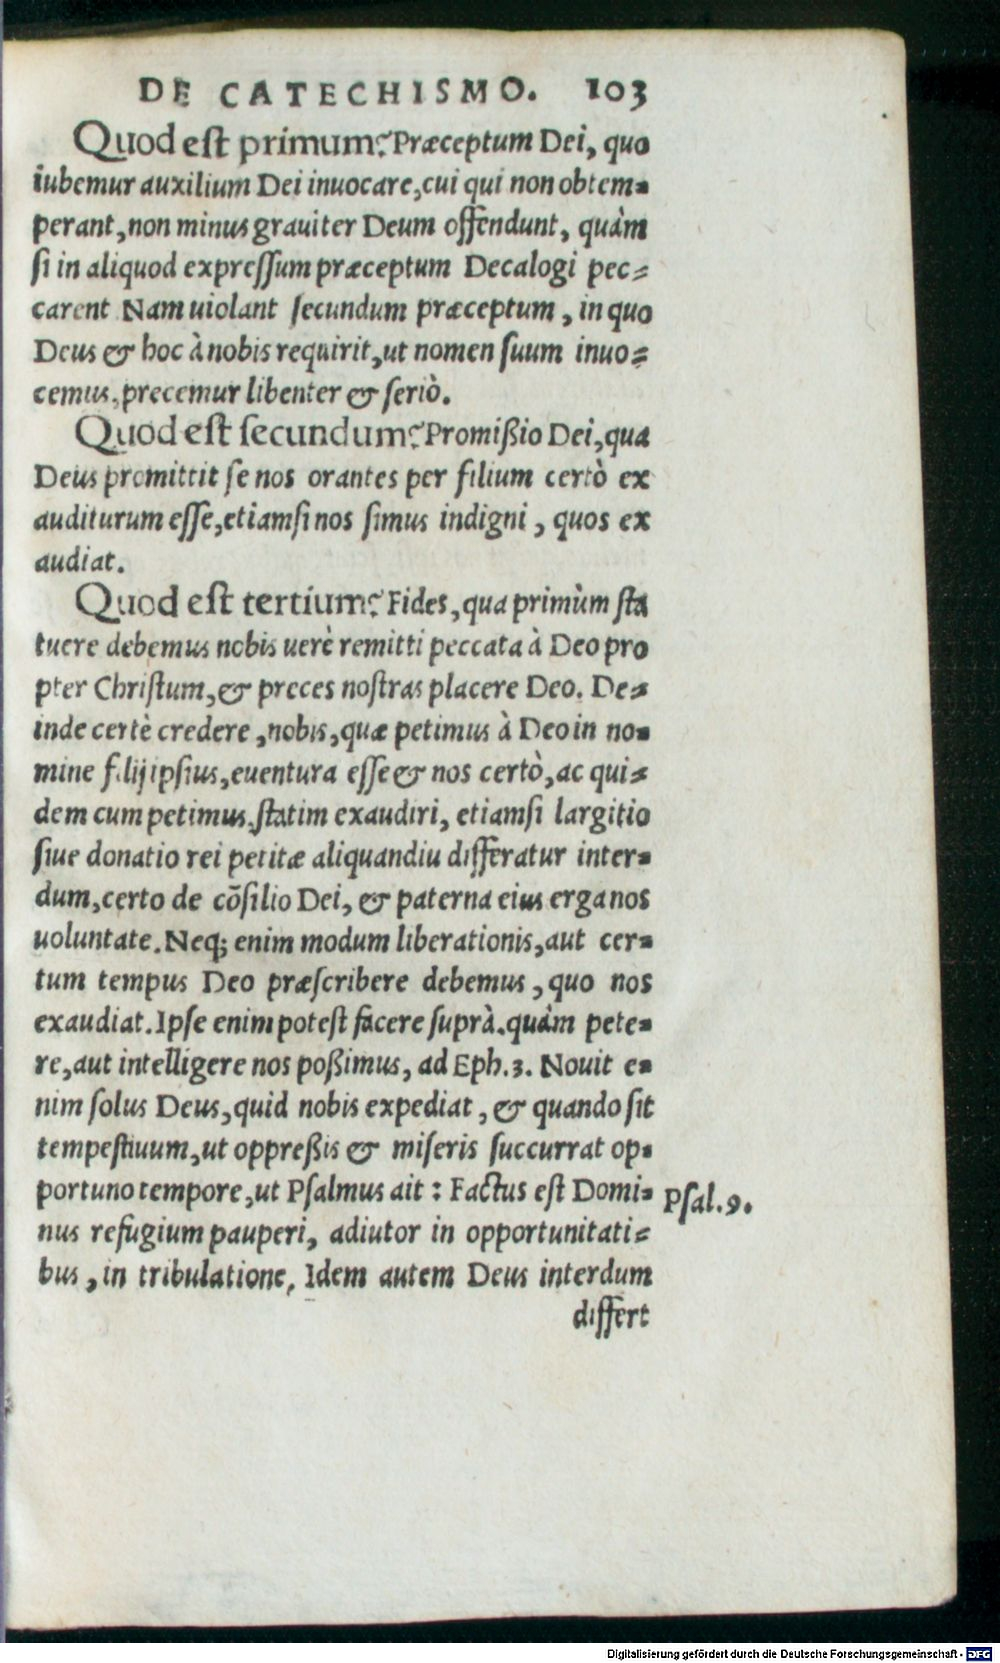 DE CATECHISMO. 103
Quod est primum? Præceptum Dei, quo
iubemur auxilium Dei inuocare, cui qui non obtem-
perant, non minus grauiter Deum offendunt, quàm
si in aliquod expressum præceptum Decalogi pec-
carent Nam uiolant secundum præceptum, in quo
Deus & hoc à nobis requirit, ut nomen suum inuo-
cemus, precemur libenter & seriò.
Quod est secundum? Promißio Dei, qua
Deus promittit se nos orantes per filium certò ex
auditurum esse, etiamsi nos simus indigni, quos ex
audiat.
Quod est tertium? Fides, qua primùm sta
tuere debemus nobis uerè remitti peccata à Deo pro
pter Christum, & preces nostras placere Deo. De-
inde certè credere, nobis, quæ petimus à Deo in no-
mine filij ipsius, euentura esse & nos certò, ac qui-
dem cum petimus, statim exaudiri, etiamsi largitio
siue donatio rei petitæ aliquandiu differatur inter-
dum, certo de cõsilio Dei, & paterna eius erga nos
uoluntate. Neq; enim modum liberationis, aut cer-
tum tempus Deo præscribere debemus, quo nos
exaudiat. Ipse enim potest facere suprà. quàm pete-
re, aut intelligere nos poßimus, ad Eph. 3. Nouit e-
nim solus Deus, quid nobis expediat, & quando sit
tempestiuum, ut oppreßis & miseris succurrat op-
portuno tempore, ut Psalmus ait: Factus est Domi-
Psal. 9.
nus refugium pauperi, adiutor in opportunitati-
bus, in tribulatione, Idem autem Deus interdum
differt
Digitalisierung gefördert durch die Deutsche Forschungsgemeinschaft - DFG